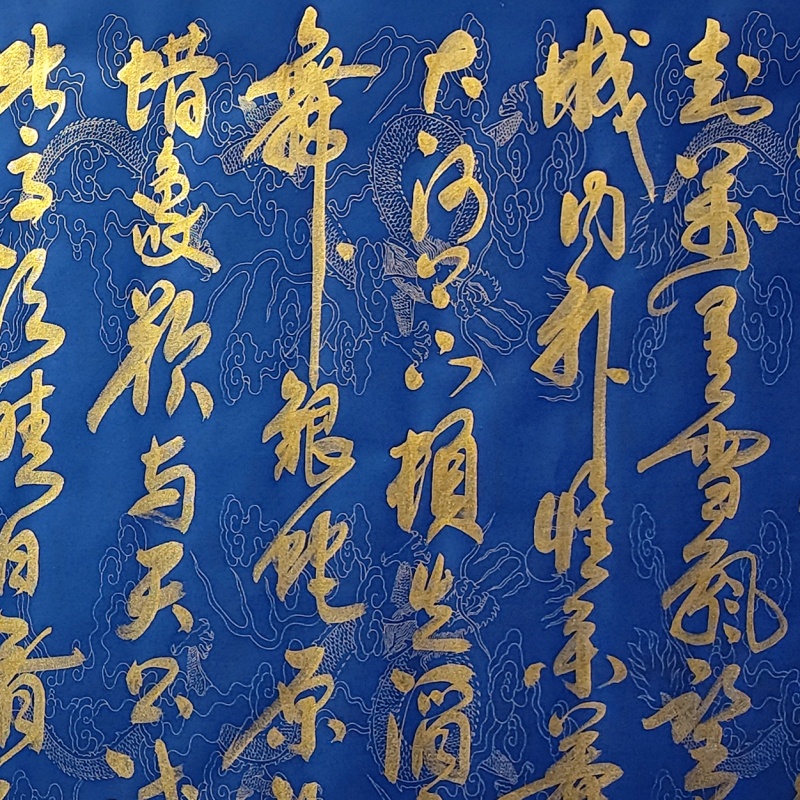 封萬里雪飄望
城内外惟余莽
大河上下頓失滔
舞銀蛇原
蜡象欲与天公試
比高須晴日看